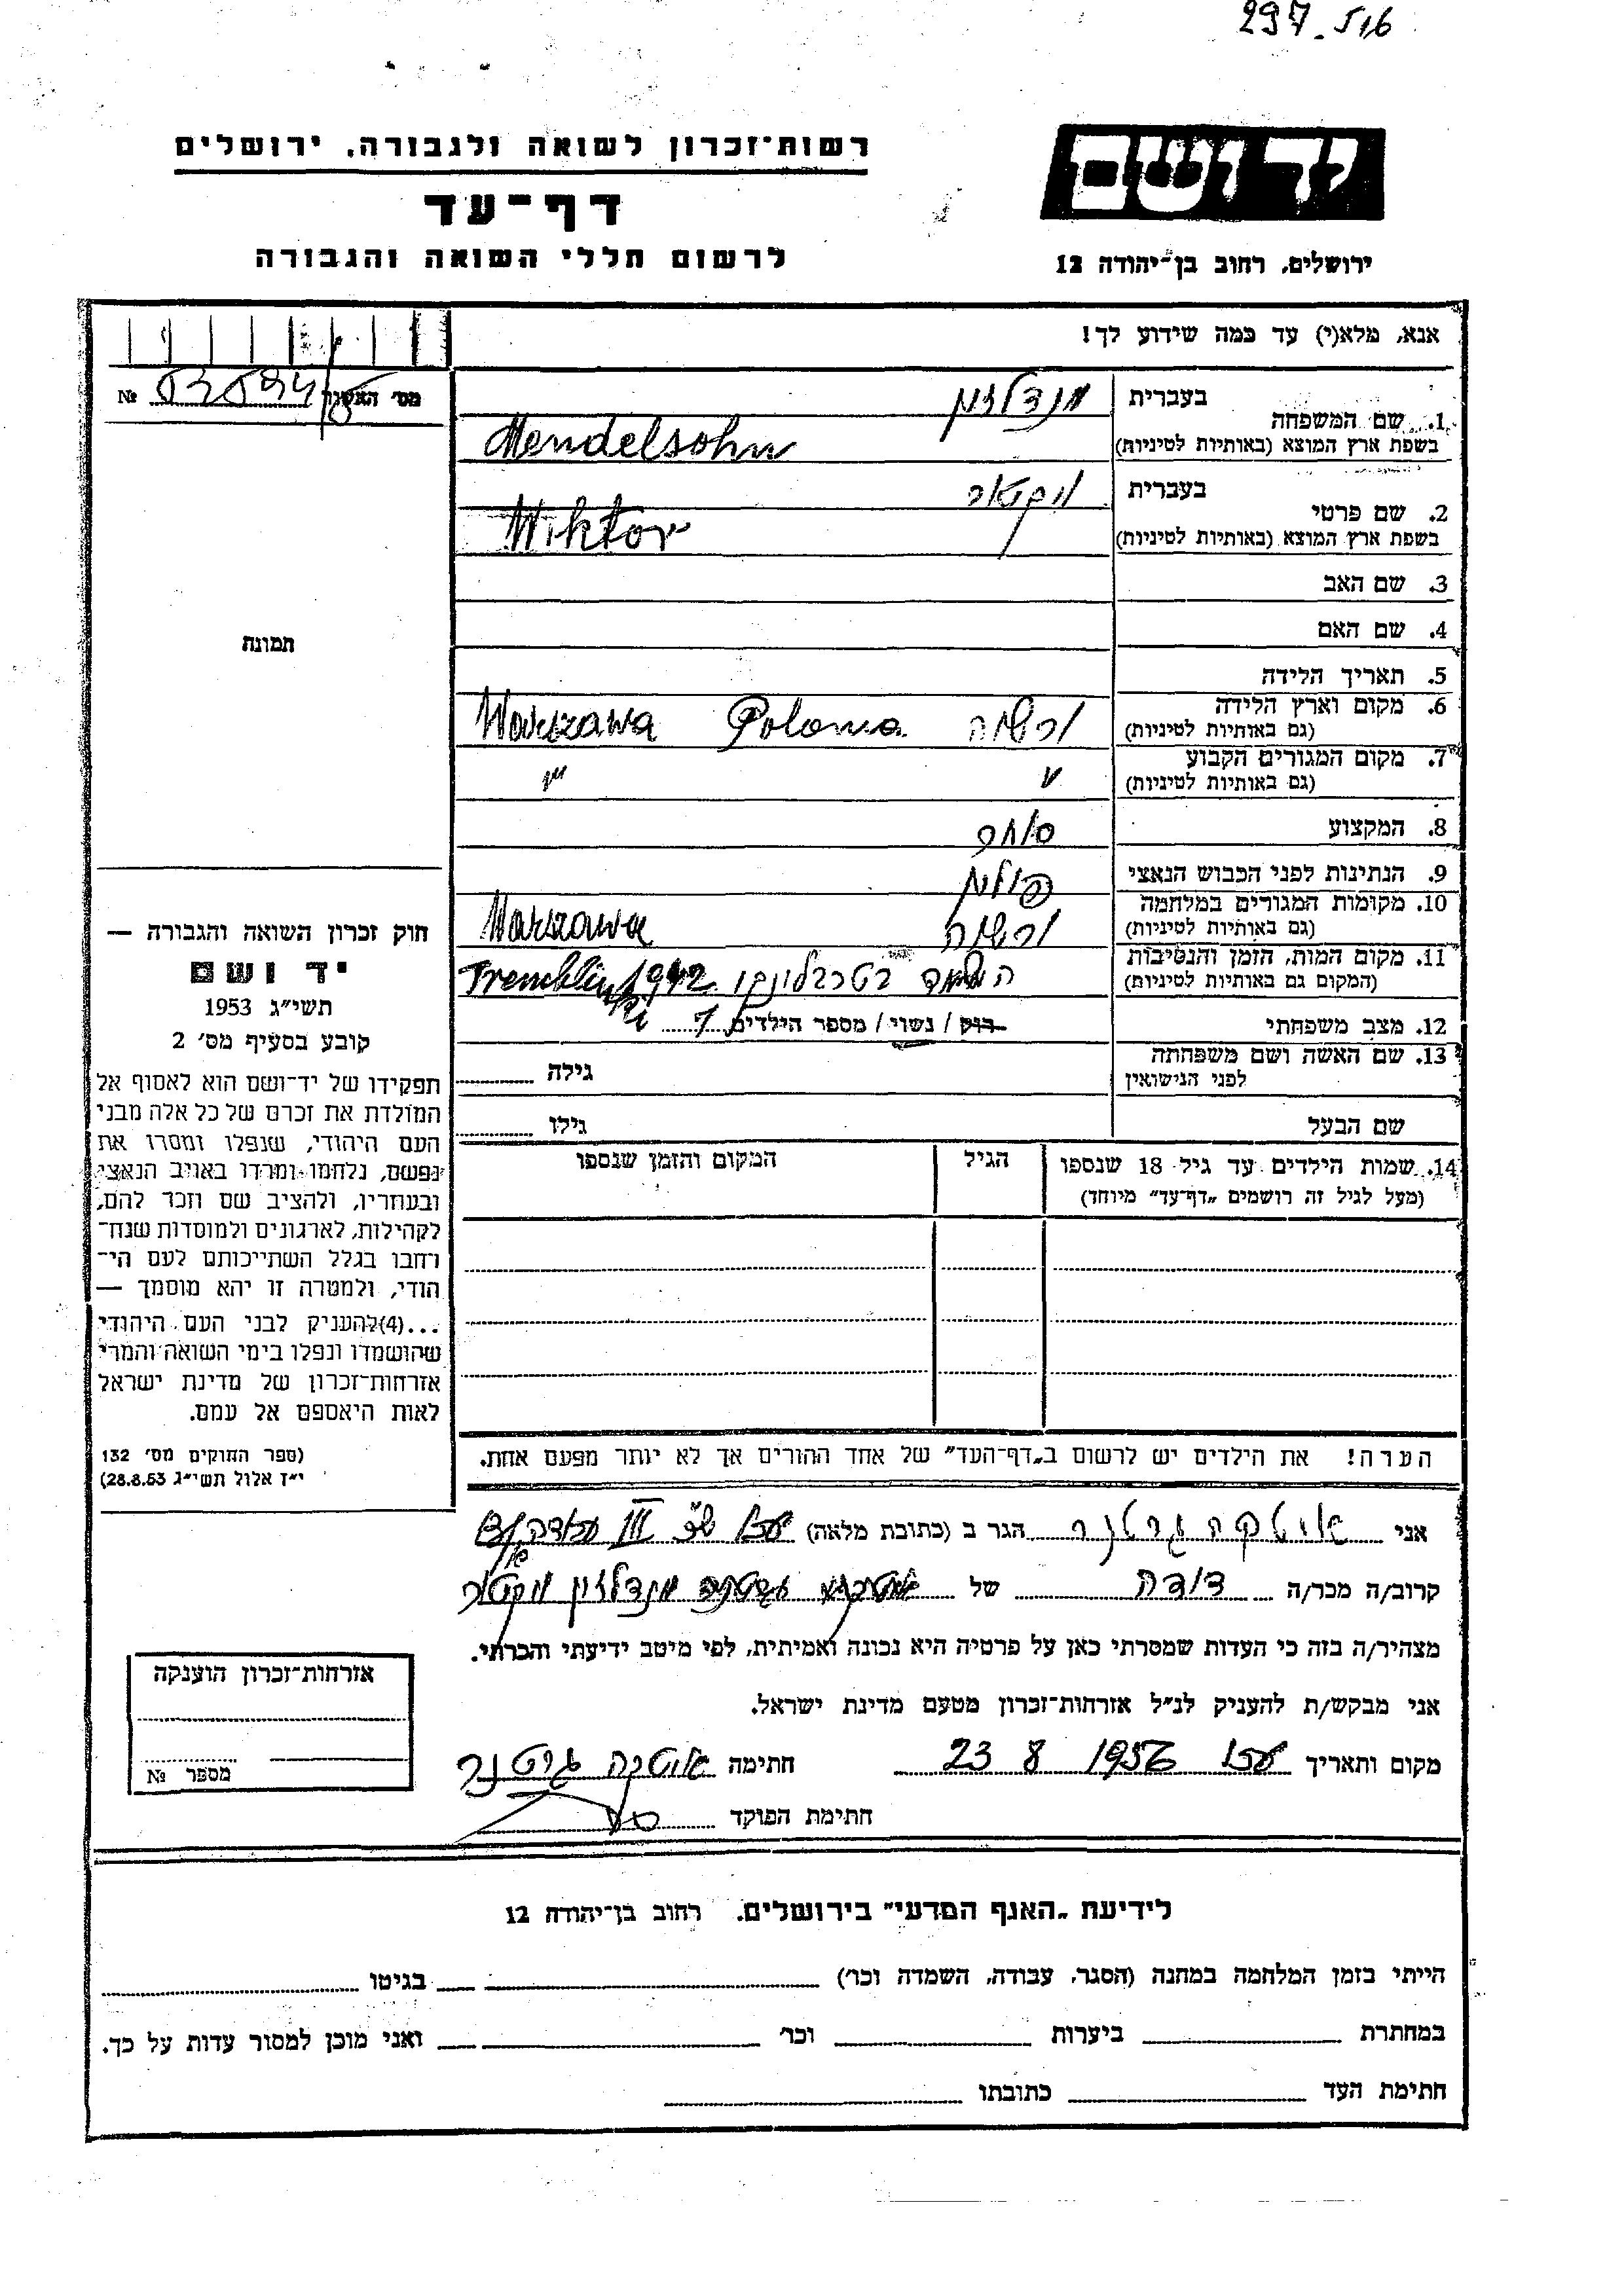 297.516
רשות־זכרון לשואה ולגבורה, ירושלים
יד ושם
דף־עד
לרשום חללי השואה והגבורה
ירושלים, רחוב בן־יהודה 12
אנא, מלא(י) עד כמה שידוע לך!
מס׳ האשנב №
1. שם המשפחה בעברית מנדלזון
בשפת ארץ המוצא (באותיות לטיניות) Mendelsohn
2. שם פרטי בעברית ויקטור
בשפת ארץ המוצא (באותיות לטיניות) Wiktor
3. שם האב
4. שם האם
תמונה
5. תאריך הלידה
6. מקום וארץ הלידה ורשה Polonia Warszawa
(גם באותיות לטיניות)
7. מקום המגורים הקבוע
(גם באותיות לטיניות)
8. המקצוע סוחר
9. הנתינות לפני הכבוש הנאצי פולין
10. מקומות המגורים במלחמה ורשה Warszawa
(גם באותיות לטיניות)
11. מקום המות, הזמן והנסיבות 1942
(המקום גם באותיות לטיניות)
12. מצב משפחתי רוק / נשוי / מספר הילדים 1
13. שם האשה ושם משפחתה גילה
לפני הנישואין
שם הבעל גילו
14. שמות הילדים עד גיל 18 שנספו הגיל המקום והזמן שנספו
(מעל לגיל זה רושמים „דף־עד״ מיוחד)
הערה! את הילדים יש לרשום ב„דף־העד״ של אחד ההורים אך לא יותר מפעם אחת.
חוק זכרון השואה והגבורה —
יד ושם
תשי״ג 1953
קובע בסעיף מס׳ 2
תפקידו של יד־ושם הוא לאסוף אל
המולדת את זכרם של כל אלה מבני
העם היהודי, שנפלו ומסרו את
נפשם, נלחמו ומרדו באויב הנאצי
ובעוזריו, ולהציב שם וזכר להם,
לקהילות, לארגונים ולמוסדות שנח־
רחבו בגלל השתייכותם לעם הי־
הודי, ולמטרה זו יהא מוסמך —
...(4)להעניק לבני העם היהודי
שהושמדו ונפלו בימי השואה והמרי
אזרחות־זכרון של מדינת ישראל
לאות היאספם אל עמם.
(ספר החוקים מס׳ 132
י״ז אלול תשי״ג 28.8.53)
אני הגר ב (כתובת מלאה)
קרוב/ה מכר/ה דודה של מנדלזון ויקטור
מצהיר/ה בזה כי העדות שמסרתי כאן על פרטיה היא נכונה ואמיתית, לפי מיטב ידיעתי והכרתי.
אני מבקש/ת להעניק לנ״ל אזרחות־זכרון מטעם מדינת ישראל.
מקום ותאריך עכו 23 8 1956 חתימה
חתימת הפוקד
אזרחות־זכרון הוענקה
מספר №
לידיעת „האגף המדעי״ בירושלים, רחוב בן־יהודה 12
הייתי בזמן המלחמה במחנה (הסגר, עבודה, השמדה וכר׳) בגיטו
במחתרת ביערות וכר׳ ואני מוכן למסור עדות על כך.
חתימת העד כתובתו